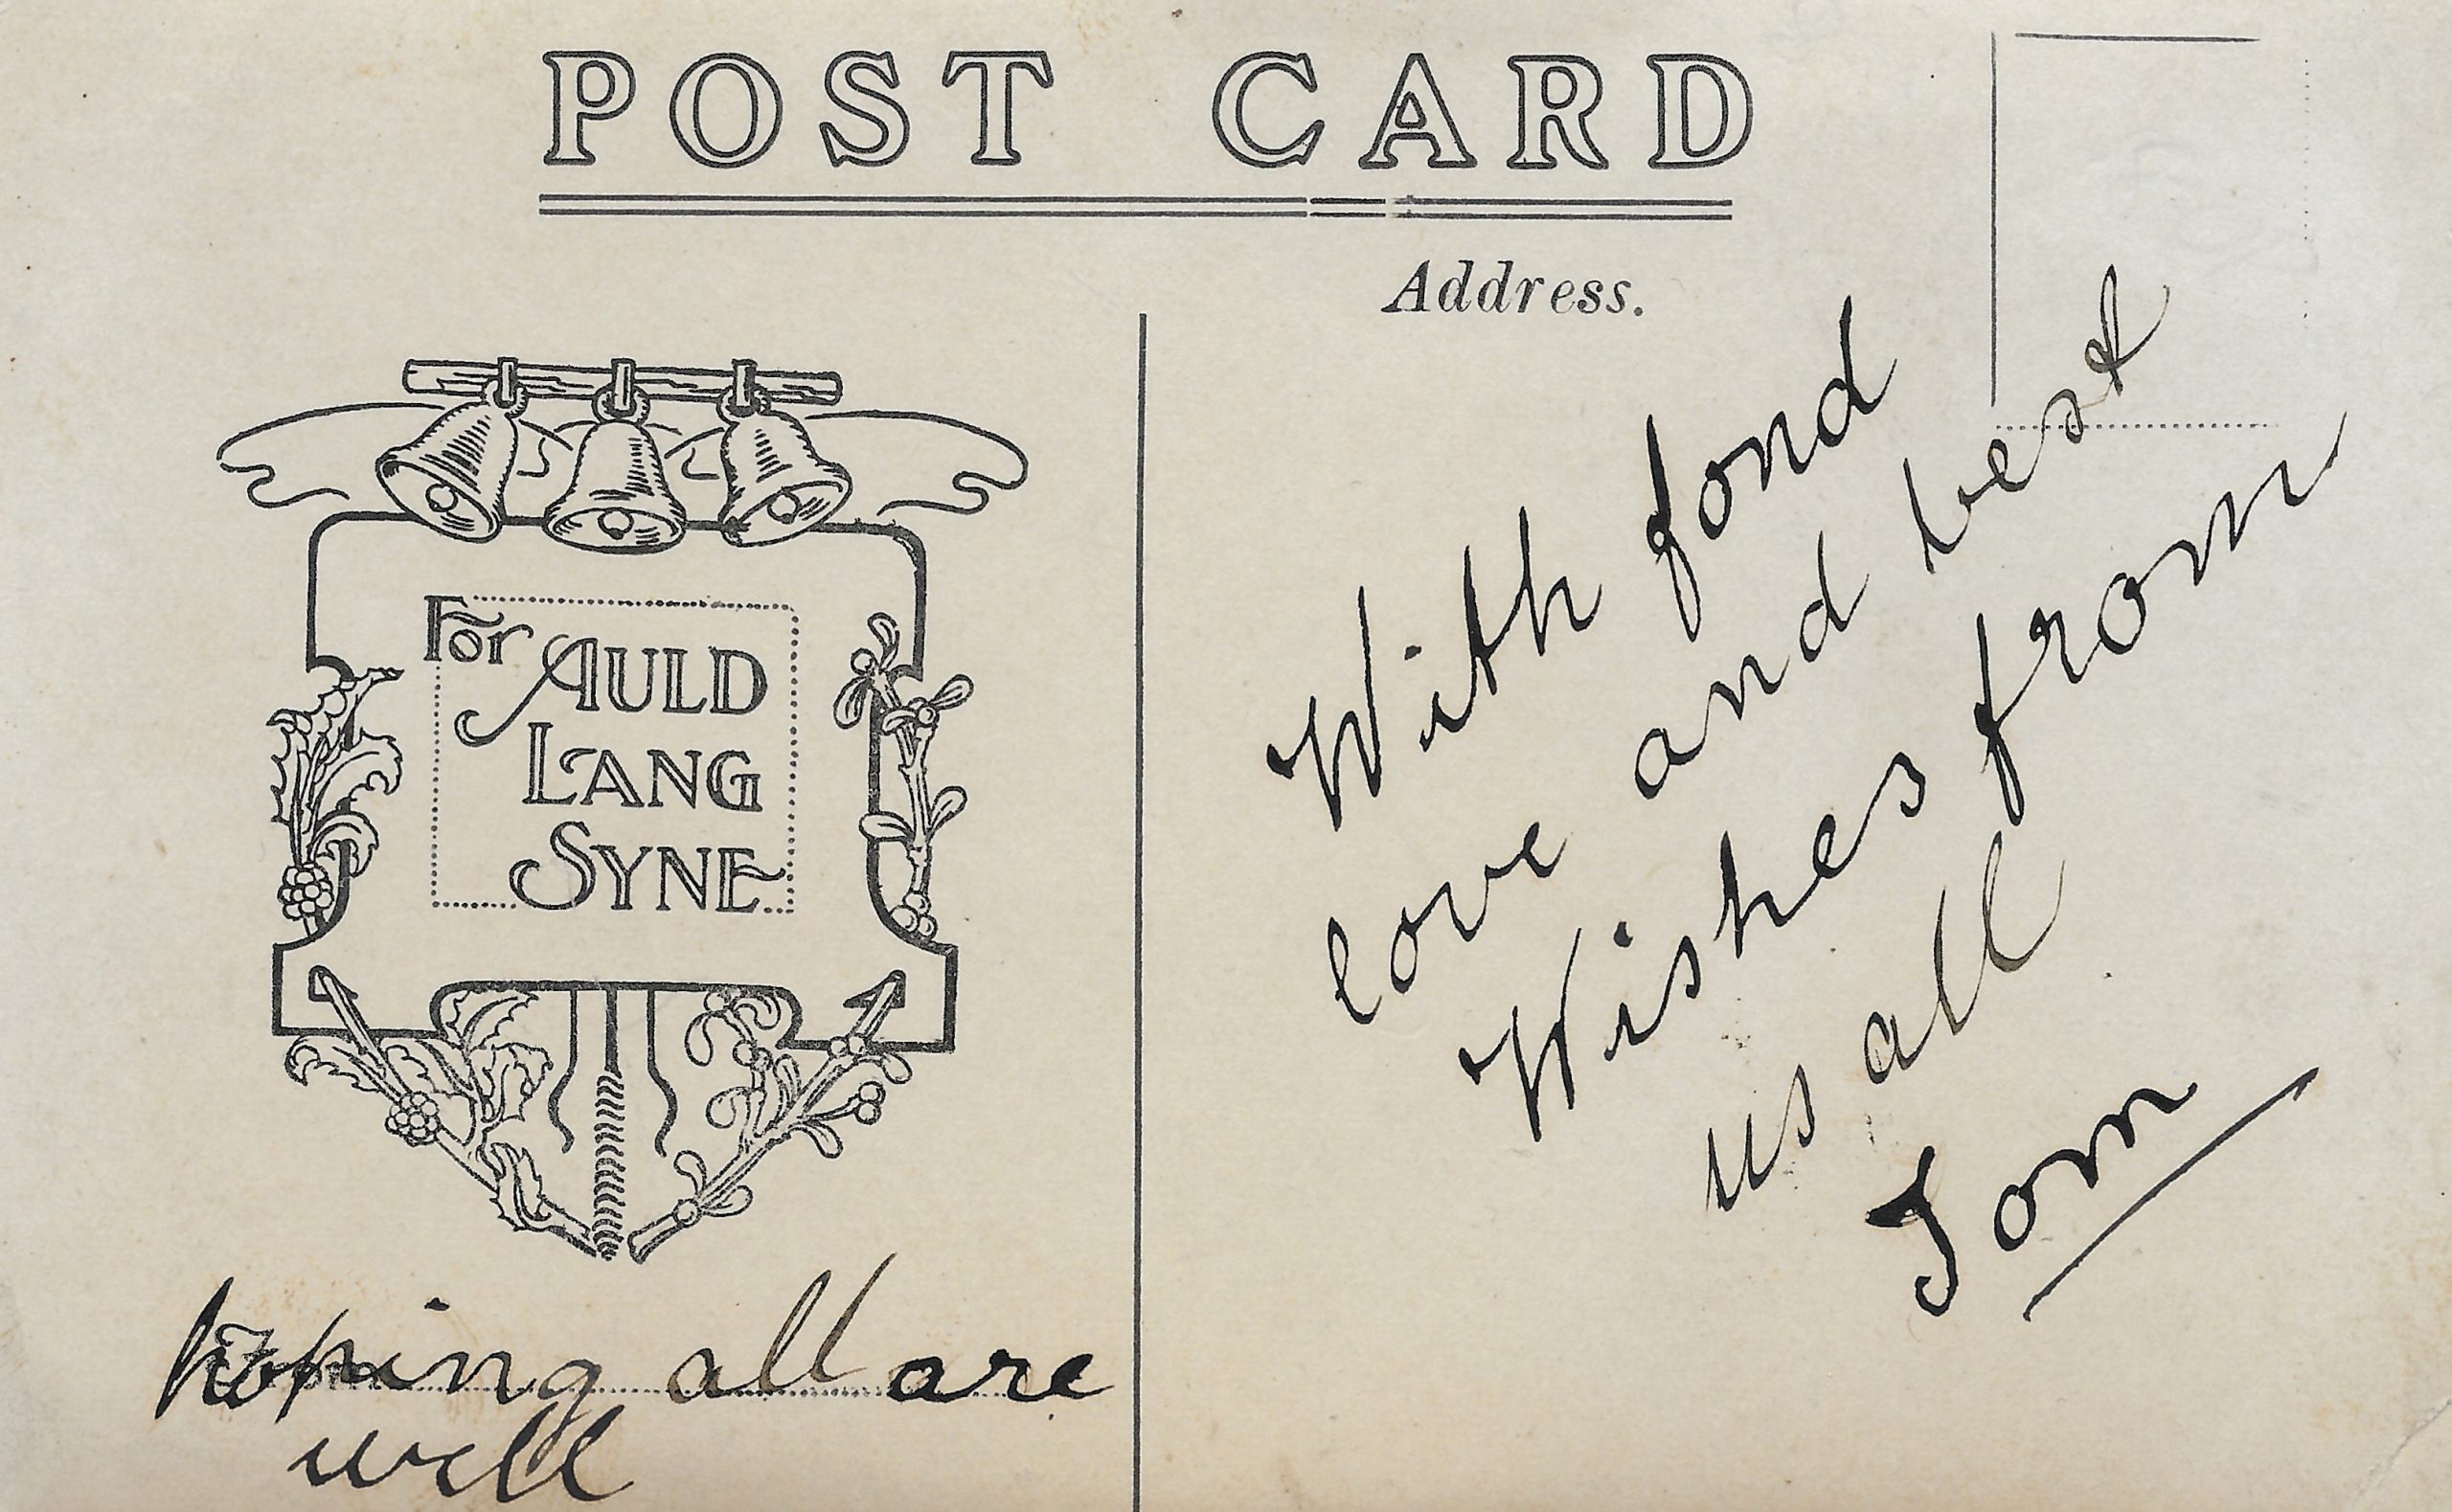 POST CARD
Address.
For AULD
LANG
SYNE
hoping all are
well
With fond
love and best
Wishes from
us all
Tom